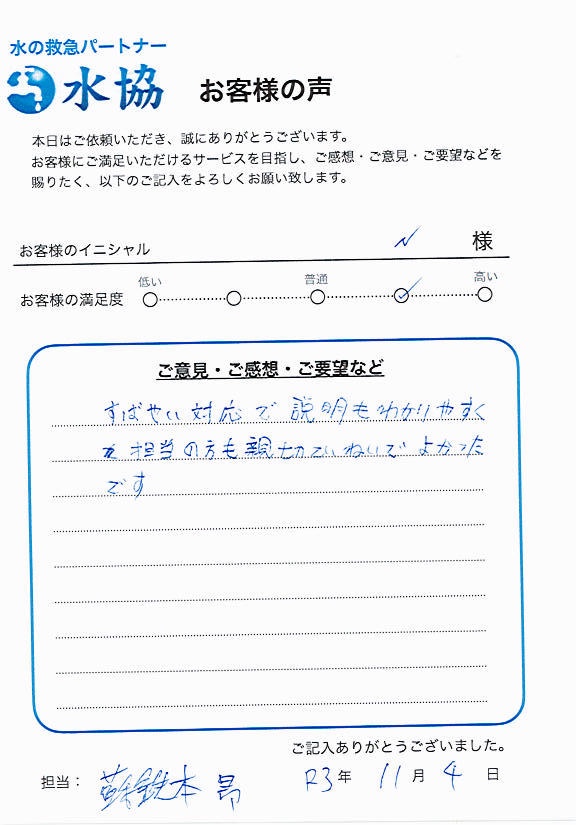 水の救急パートナー
水協
お客様の声
本日はご依頼いただき、誠にありがとうございます。
お客様にご満足いただけるサービスを目指し、ご感想・ご意見・ご要望などを
賜りたく、以下のご記入をよろしくお願い致します。
お客様のイニシャル N 様
低い 普通 高い
お客様の満足度
ご意見・ご感想・ご要望など
すばせい対応で説明もわかりやすく
担当の方も親切ていねいでよかった
です
ご記入ありがとうございました。
担当: 蘇鉄本 昂 R3年 11月 4日